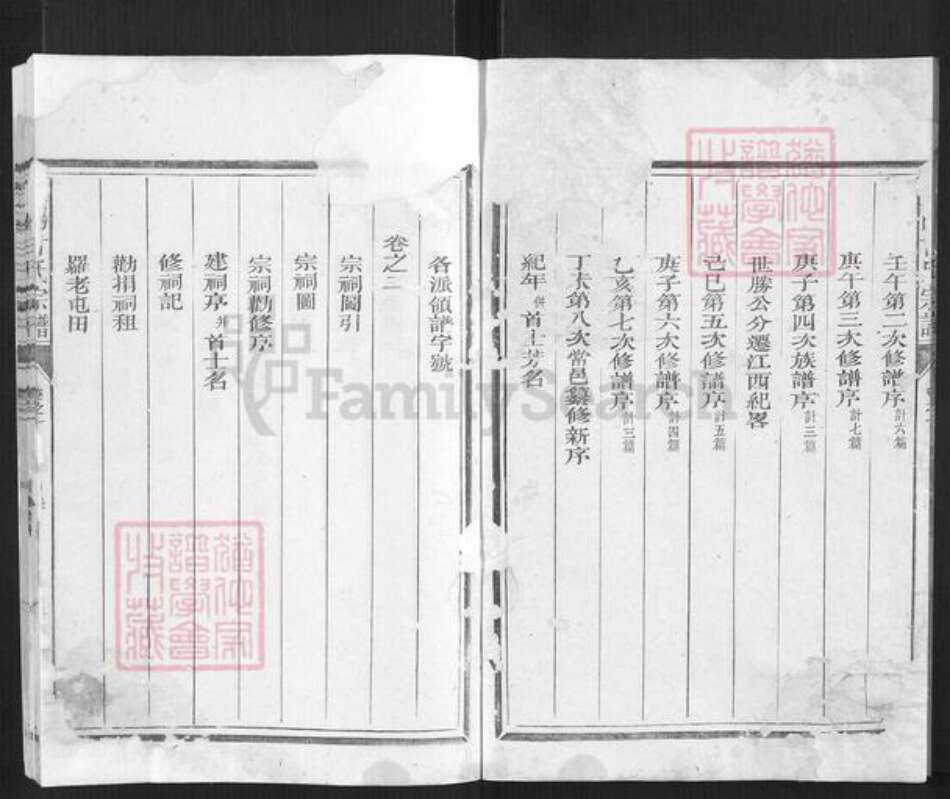 壬午第二次修譜序計六篇
庚午第三次修譜序計七篇
庚子第四次族譜序計三篇
世勝公分遷江西紀畧
己巳第五次修譜序計五篇
庚子第六次修譜序計四篇
乙亥第七次修譜序計三篇
丁未第八次常邑纂修新序
紀年 併 首士芳名
各派領譜字號
卷之二
宗祠圖引
宗祠圖
宗祠勸修序
建祠序 并 首士名
修祠記
勸捐祠租
羅老屯田
FamilySearch